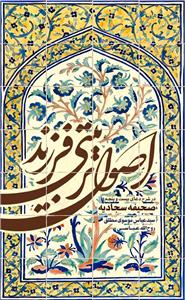 اصول تربیتی فرزند
در شرح دعای بیست و پنجم
صحیفه سجادیه
سیدعباس موسوی مطلق
روح‌الله عباسی